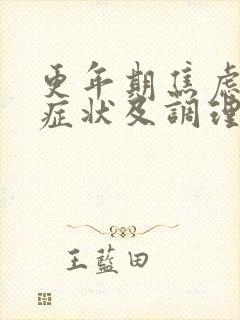 更年期焦虑
症状及調理
王藍田